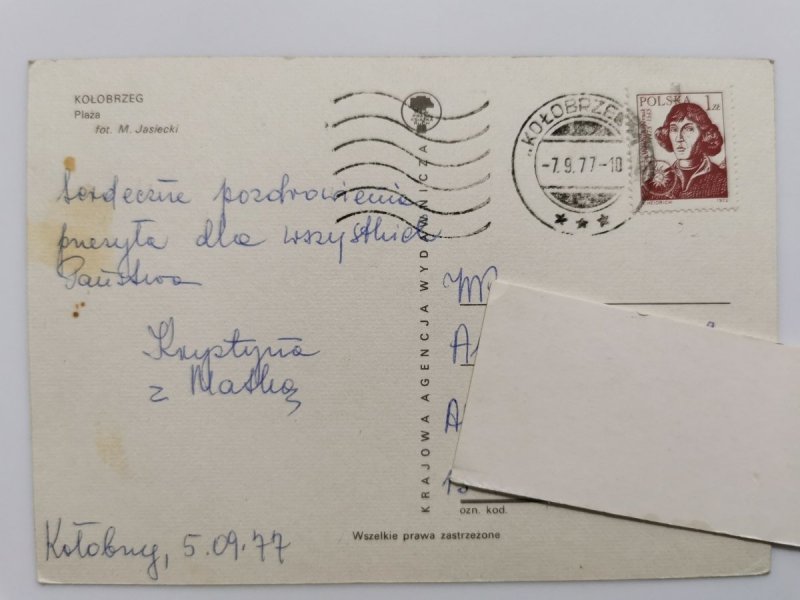 KOŁOBRZEG
Plaża
fot. M. Jasiecki
Serdeczne pozdrowienia
przesyła dla wszystkich
Państwa
Krystyna
z Matką
Kołobrzeg, 5.09.77
KRAJOWA AGENCJA WYDAWNICZA
"KOŁOBRZEG
-7.9.77-10
POLSKA 1 zł
1972
ozn. kod.
Wszelkie prawa zastrzeżone